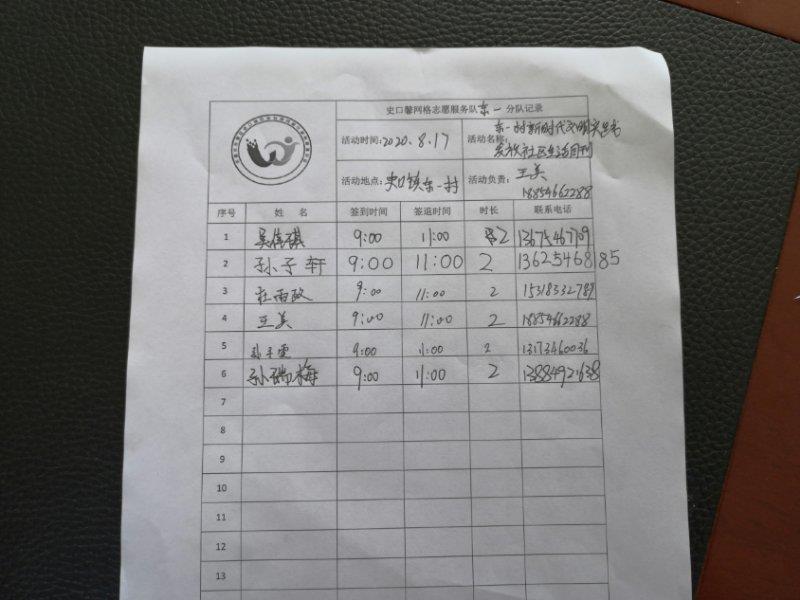 史口馨网格志愿服务队东一分队记录
活动时间:2020.8.17 活动名称: 东一村新时代文明实践
发放社区生活月刊
活动地点: 史口镇东一村 活动负责: 王美
18854662288
序号 姓 名 签到时间 签退时间 时长 联系电话
1 9:00 11:00 2 13675467709
2 孙子轩 9:00 11:00 2 13625468185
3 杜雨政 9:00 11:00 2 15318332789
4 王美 9:00 11:00 2 18854662288
5 9:00 11:00 2 13173460036
6 孙瑞梅 9:00 11:00 2 13884921638
7
8
9
10
11
12
13